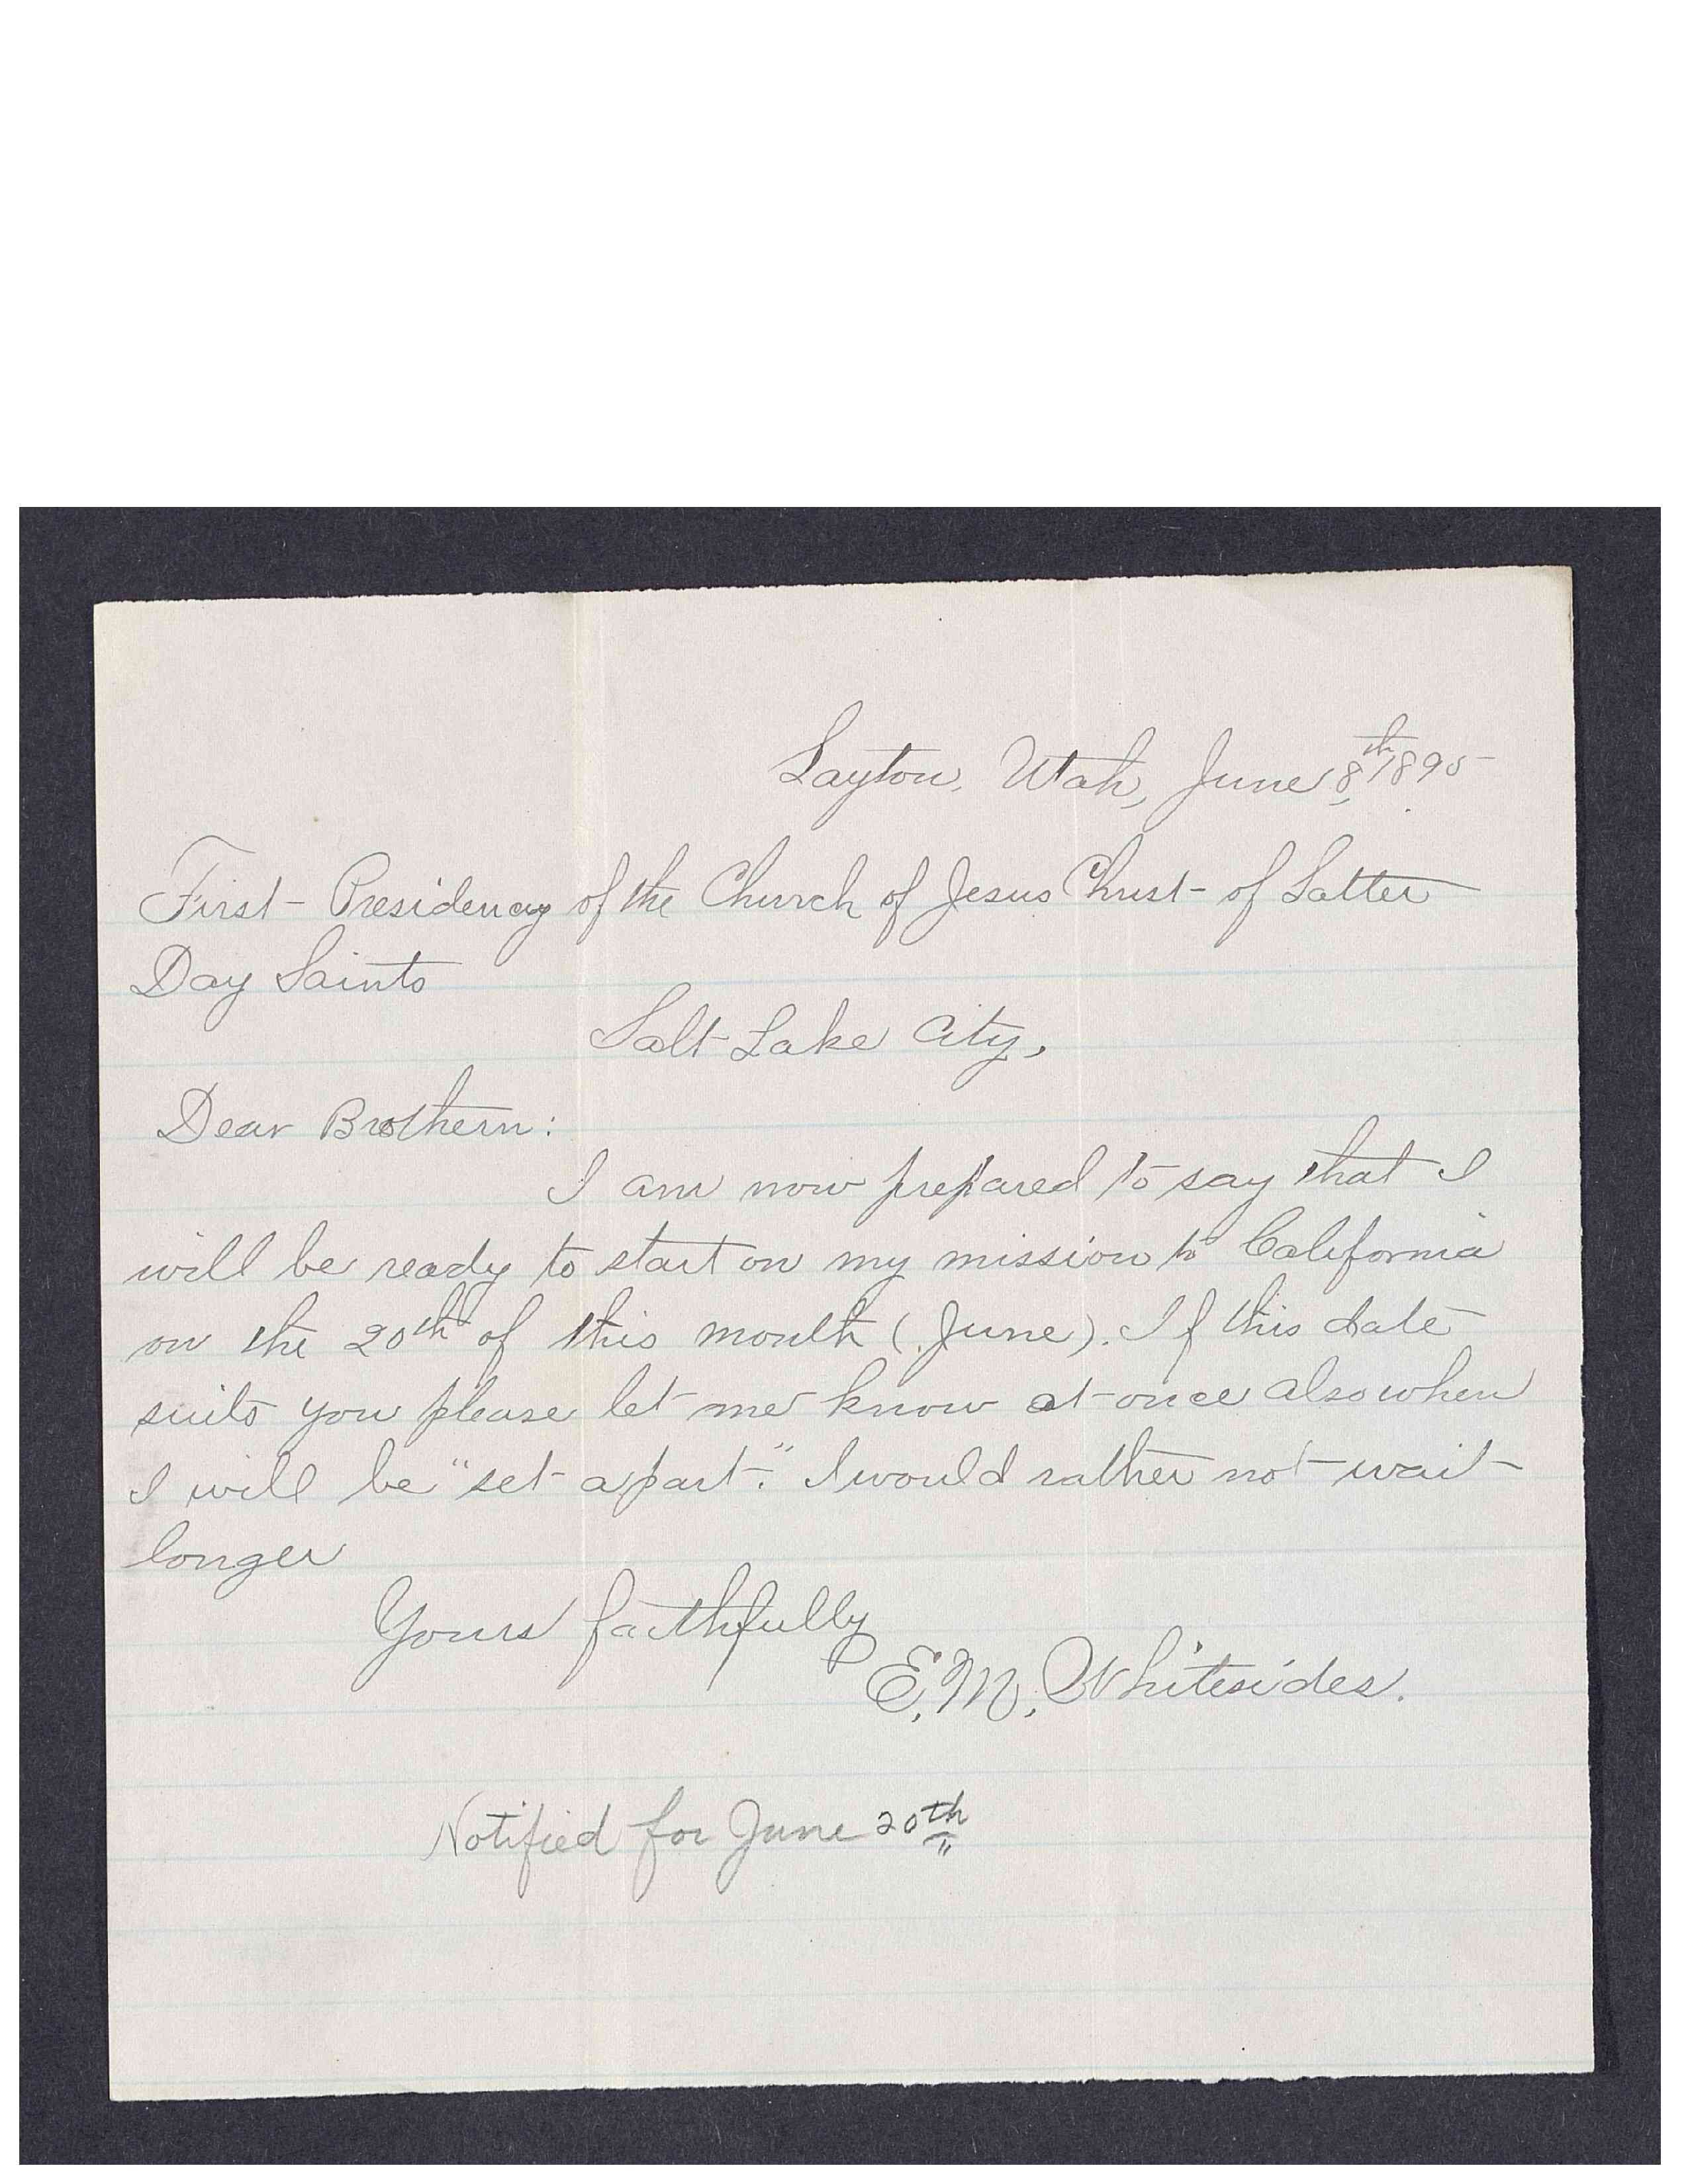 Layton, Utah, June 8th, 1895
First Presidency of the Church of Jesus Christ of Latter
Day Saints
Salt Lake City,
Dear Brothern:
I am now prepared to say that I
will be ready to start on my mission to California
on the 20th of this month (June). If this date
suits you please let me know at once also when
I will be "set apart." I would rather not wait
longer
Yours faithfully
E. M. Whitesides.
Notified for June 20th